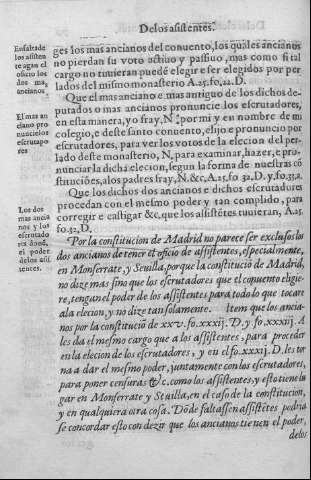 De los asistentes.
En falta de
los asisten
tes agan el
oficio los
dos mas
ancianos
ges los mas ancianos del conuento, los quales ancianos
no pierdan su voto actiuo y passiuo, mas como si tal
cargo no tuuieran puedē elegir e ser elegidos por per
lados del mismo monasterio A.25.fo,22.D.
El mas an
ciano pro
nuncie los
escrutapo
res
Que el mas anciano e mas antiguo de los dichos de-
putados o mas ancianos pronuncie los escrutadores,
en esta manera, yo fray, N por mi y en nombre de mi
colegio, e deste santo conuento, elijo e pronuncio por
escrutadores, para ver los votos de la elecion del per-
lado deste monasterio, N, para examinar, hazer, e pro-
nunciar la dicha elecion, segun la forma de nuestras cō
stituciōes, a los padres fray, N. &c, A.25. fo 32. D. y fo.33.a.
Los dos
mas ancia
nos y los
escrutado
res donā,
el poder
delos asis
tentes.
Que los dichos dos ancianos e dichos escrutadores
procedan con el mesmo poder y tan complido, para
corregir e castigar &c, que los asistētes tuuieran, A.25.
fo.32, D.
Por la constitucion de Madrid no parece ser exclusos los
dos ancianos de tener el oficio de assistentes, especialmente,
en Monserrate, y Seuilla, porque la constitució de Madrid,
no dize mas sino que los escrutadores que el conuento eligie-
re, tengan el poder de los assistentes para todo lo que tocare
ala elecion, y no dize tan solamente. Item que los ancia-
nos por la constitució de xxv. fo. xxxij. D. y fo. xxxiij. A
les da el mesmo cargo que a los assistentes, para proceder
en la elecion de los escrutadores, y en el fo. xxxij. D. les tor
na a dar el mesmo poder, juntamente con los escrutadores,
para poner censuras &c. como los assistentes y esto tiene lu
gar en Monserrate y Seuilla, en el caso de la constitucion,
y en qualquiera otra cosa. Dōde faltassen assistētes podria
se concordar esto con dezir que los ancianos tienen el poder,
delos